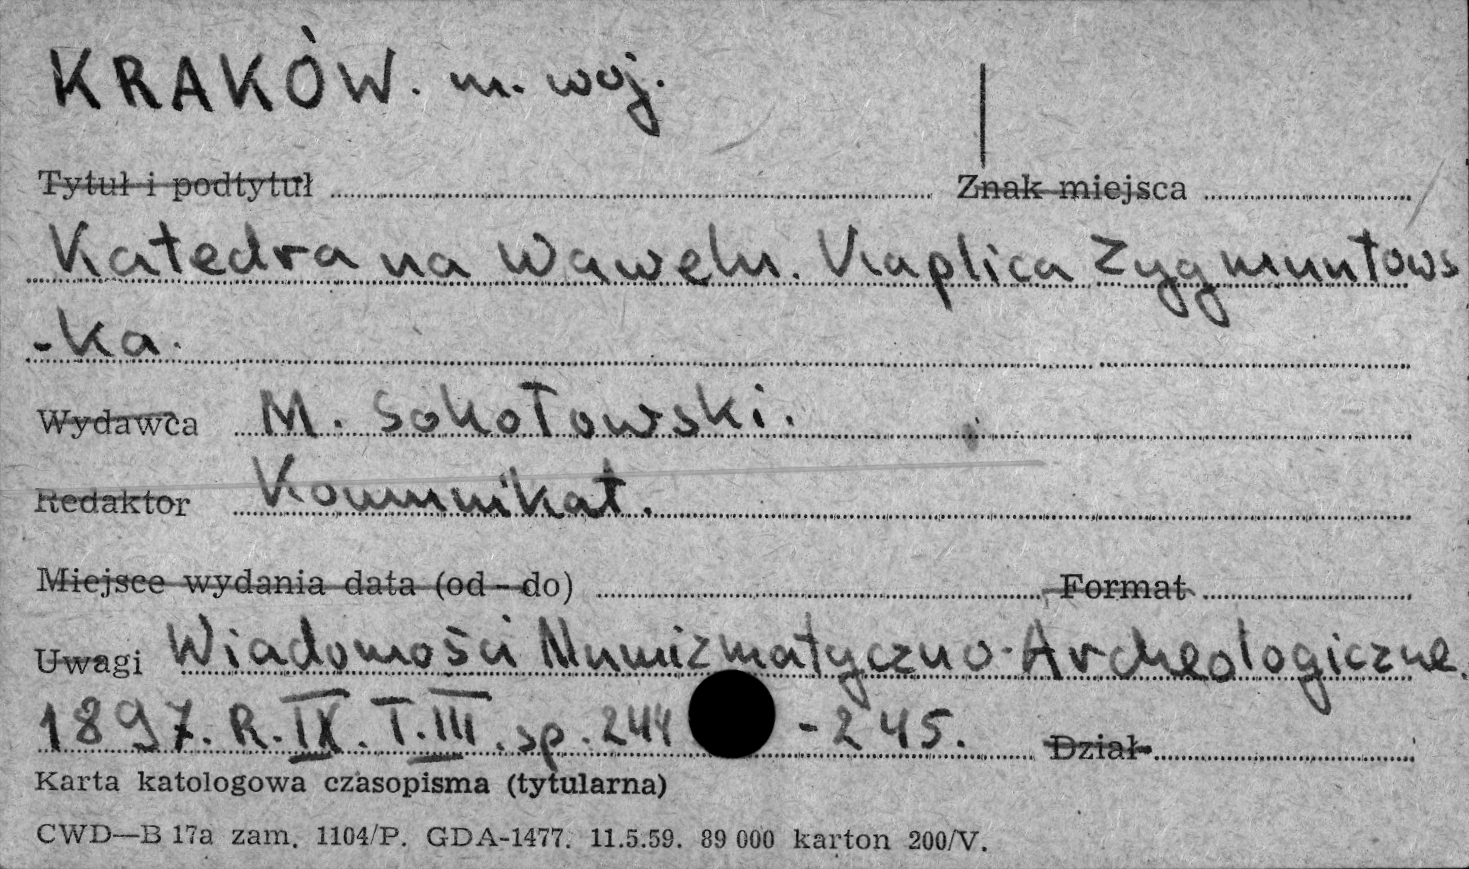 KRAKÓW. m. woj.
Tytuł i podtytuł Znak miejsca
Katedra na Wawelu. Kaplica Zygmuntows
-ka.
Wydawca M. Sokołowski.
Redaktor Komunikat.
Miejsce wydania data (od-do) Format
Uwagi Wiadomości Numizmatyczno-Archeologiczne.
1897. R. IX. T. III. sp. 244 -245. Dział
Karta katologowa czasopisma (tytularna)
CWD—B 17a zam. 1104/P. GDA-1477. 11.5.59. 89 000 karton 200/V.